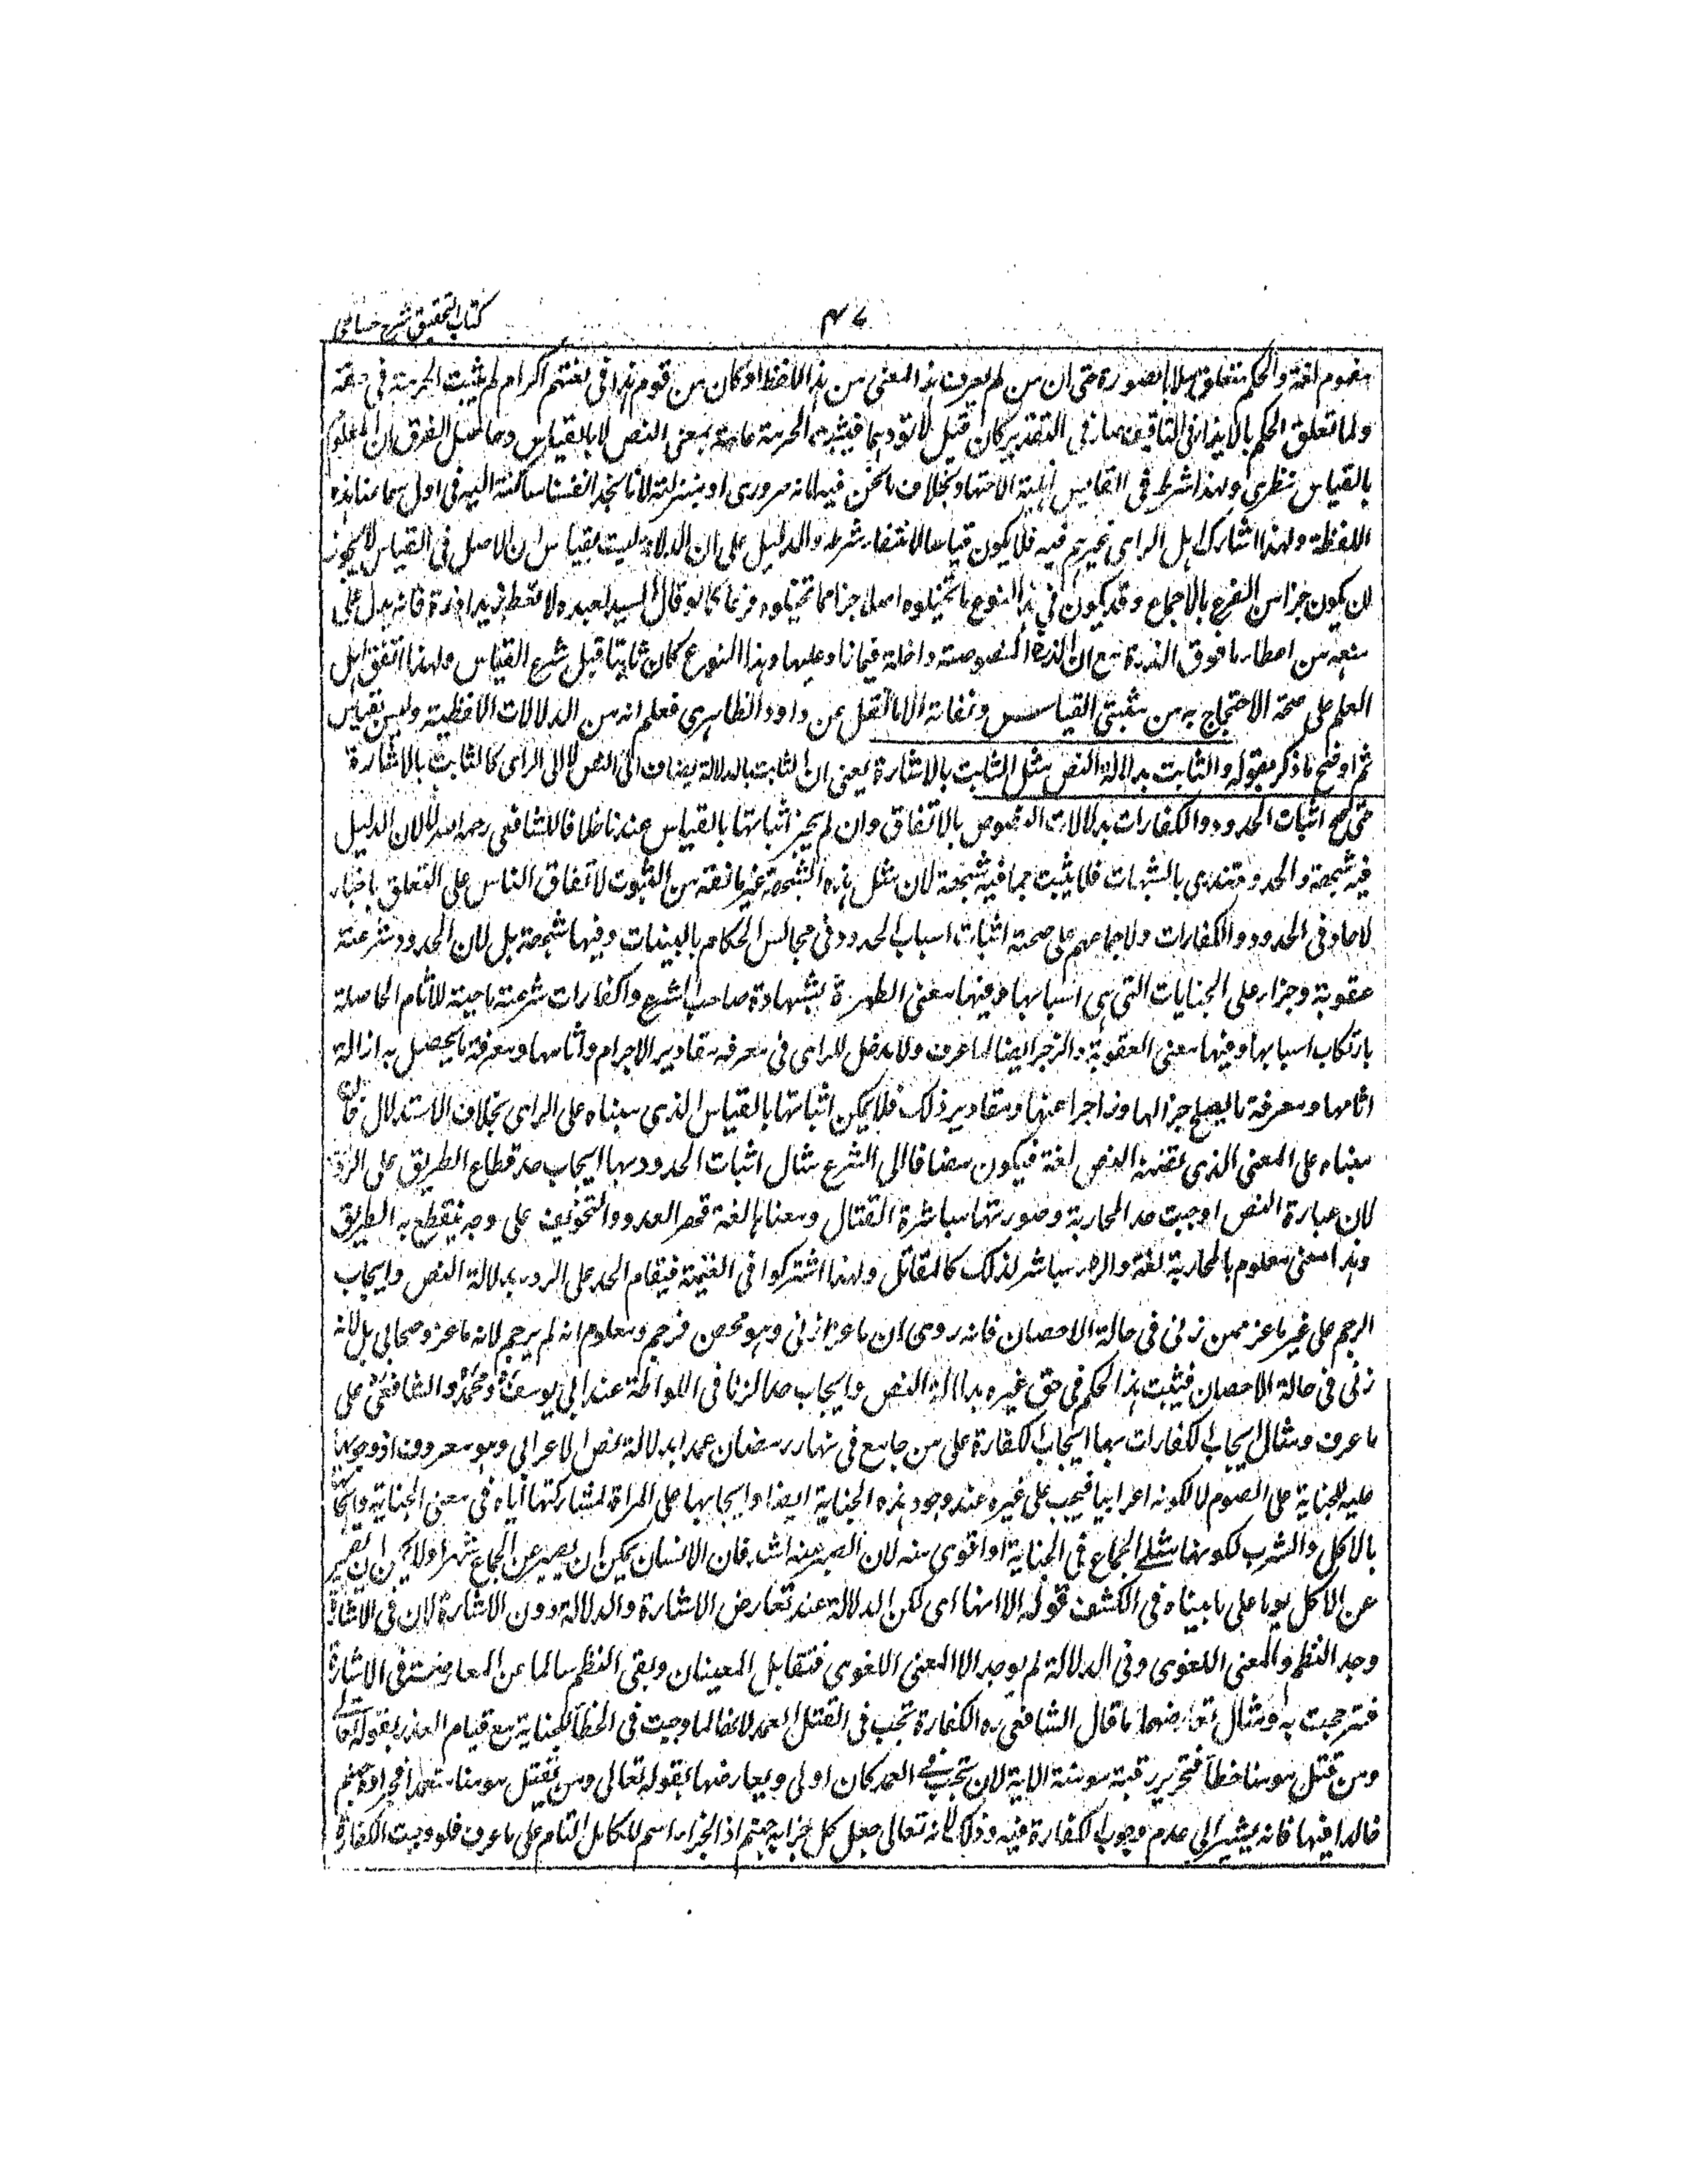 كتاب التحقيق شرح حسامى
٤٧
مفهوم لغة والحكم متعلق به لا بالصورة حتى ان من لم يعرف هذا المعنى من هذا اللفظ او كان من قوم هذا فى لغتهم اكرام لم يثبت الحرمة فى حقه
ولما تعلق الحكم بالايذاء فى التافيف صار فى التقدير كان قيل لا تؤذهما فيثبت الحرمة عامة بمعنى النص لا بالقياس وحاصل الفرق ان المعلوم
بالقياس نظرى ولهذا شرط فى القايس اهلية الاجتهاد بخلاف ما نحن فيه لانه ضرورى او بمنزلته لانا نجد انفسنا ساكنة اليه فى اول سماعنا هذه
اللفظة ولهذا شارك اهل الراى غيرهم فيه فلا يكون قياسا لانتفاء شرطه والدليل على ان الدلالة ليست بقياس ان الاصل فى القياس لا يجوز
ان يكون جزا من الفرع بالاجماع وقد يكون فى هذا النوع ما تخيلوه اصلا جزا مما تخيلوه فرعا كما لو قال السيد لعبده لا تعط زيدا ذرة فانه يدل على
منعه من اعطاء ما فوق الذرة مع ان الذرة المنصوصة داخلة فيما زاد عليها وهذا النوع كان ثابتا قبل شرع القياس ولهذا اتفق اهل
العلم على صحة الاحتجاج به من مثبتى القياس ونفاته الا ما نقل عن داود الظاهرى فعلم انه من الدلالات اللفظية وليس بقياس
ثم اوضح ما ذكر بقوله والثابت بدلالة النص مثل الثابت بالاشارة يعنى ان الثابت بالدلالة يضاف الى النص لا الى الراى كالثابت بالاشارة
حتى صح اثبات الحدود والكفارات بدلالات النصوص بالاتفاق وان لم يجز اثباتها بالقياس عندنا خلافا للشافعى رحمه الله لا لان الدليل
فيه شبهة والحدود تندرى بالشبهات فلا يثبت بما فيه شبهة لان مثل هذه الشبهة غير مانعة من الثبوت لاتفاق الناس على التعلق باخبار
الاحاد فى الحدود والكفارات ولاجماعهم على صحة اثبات اسباب الحدود فى مجالس الحكام بالبينات وفيها شبهة بل لان الحدود شرعت
عقوبة وجزاء على الجنايات التى هى اسبابها وفيها معنى الطهرة بشهادة صاحب الشرع والكفارات شرعت ماحية للاثام الحاصلة
بارتكاب اسبابها وفيها معنى العقوبة والزجر ايضا لما عرف ولا مدخل للراى فى معرفة مقادير الاجرام واثامها ومعرفة ما يحصل به ازالة
اثامها ومعرفة ما يصلح جزاء لها وزاجرا عنها ومقادير ذلك فلا يمكن اثباتها بالقياس الذى مبناه على الراى بخلاف الاستدلال فان
مبناه على المعنى الذى تضمنه النص لغة فيكون مضافا الى الشرع مثال اثبات الحدود بها ايجاب حد قطاع الطريق على الردء
لان عبارة النص اوجبت حد المحاربة وصورتها مباشرة القتال ومعناها لغة قهر العدو والتخويف على وجه ينقطع به الطريق
وهذا معنى معلوم بالمحاربة لغة والردء مباشر لذلك كالمقاتل ولهذا اشتركوا فى الغنيمة فيقام الحد على الردء بدلالة النص وايجاب
الرجم على غير ماعز ممن زنى فى حالة الاحصان فانه روى ان ماعزا زنى وهو محصن فرجم ومعلوم انه لم يرجم لانه ماعز وصحابى بل لانه
زنى فى حالة الاحصان فيثبت هذا الحكم فى حق غيره بدلالة النص وايجاب حد الزنا فى اللواطة عند ابى يوسف ومحمد والشافعى على
ما عرف ومثال ايجاب الكفارات بها ايجاب الكفارة على من جامع فى نهار رمضان عمدا بدلالة نص الاعرابى وهو معروف اذ وجوبها
عليه للجناية على الصوم لا لكونه اعرابيا فيجب على غيره عند وجود هذه الجناية ايضا وايجابها على المراة لمشاركتها اياه فى معنى الجناية وايجابها
بالاكل والشرب لكونهما مثل الجماع فى الجناية او اقوى منه لان الصبر عنه اشد فان الانسان يمكن ان يصبر عن الجماع شهرا ولا يمكن ان يصبر
عن الاكل يوما على ما بيناه فى الكشف قوله الا انها اى لكن الدلالة عند تعارض الاشارة والدلالة دون الاشارة لان فى الاشارة
وجد النظم والمعنى اللغوى وفى الدلالة لم يوجد الا المعنى اللغوى فتقابل المعنيان وبقى النظم سالما عن المعارضة فى الاشارة
فترجحت به ومثال تعارضهما ما قال الشافعى ره الكفارة تجب فى القتل العمد لانها لما وجبت فى الخطأ للجناية مع قيام العذر بقوله تعالى
ومن قتل مومنا خطأ فتحرير رقبة مومنة الاية لان تجب فى العمد كان اولى ويعارضها بقوله تعالى ومن يقتل مومنا متعمدا فجزاؤه جهنم
خالدا فيها فانه يشير الى عدم وجوب الكفارة فيه وذلك لانه تعالى جعل كل جزائه جهنم اذ الجزاء اسم للكامل التام على ما عرف فلو وجبت الكفارة